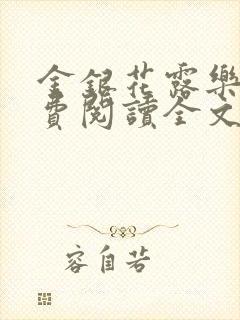 金銀花露樂
費閱讀全文
容自若